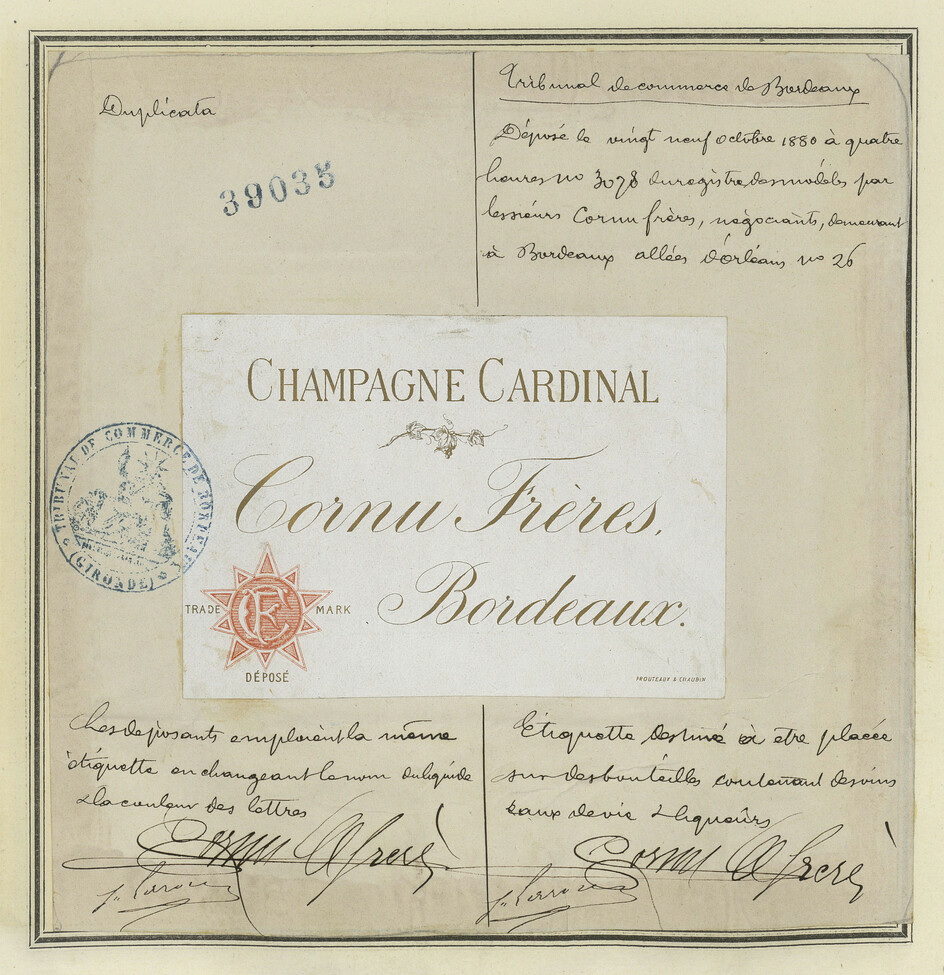 Duplicata
39035
Tribunal de commerce de Bordeaux
Déposé le vingt neuf octobre 1880 à quatre
heures no 3078 du registre des modèles par
les sieurs Cornu frères, négociants, demeurant
à Bordeaux allées d'orléans no 26
CHAMPAGNE CARDINAL
Cornu Frères.
Bordeaux.
TRIBUNAL DE COMMERCE DE BORDEAUX
(GIRONDE)
TRADE MARK
CF
DÉPOSÉ
PROUTEAUX & CHAUBIN
Les déposants emploient la même
étiquette en changeant le nom du liquide
& la couleur des lettres
Cornu & frère
Etiquette destiné à être placée
sur des bouteilles contenant des vins
eaux de vie & liqueurs
Cornu & frère